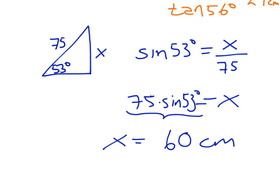 tan 56°
75
x
53°
sin 53° = x/75
75·sin 53° = x
x = 60 cm